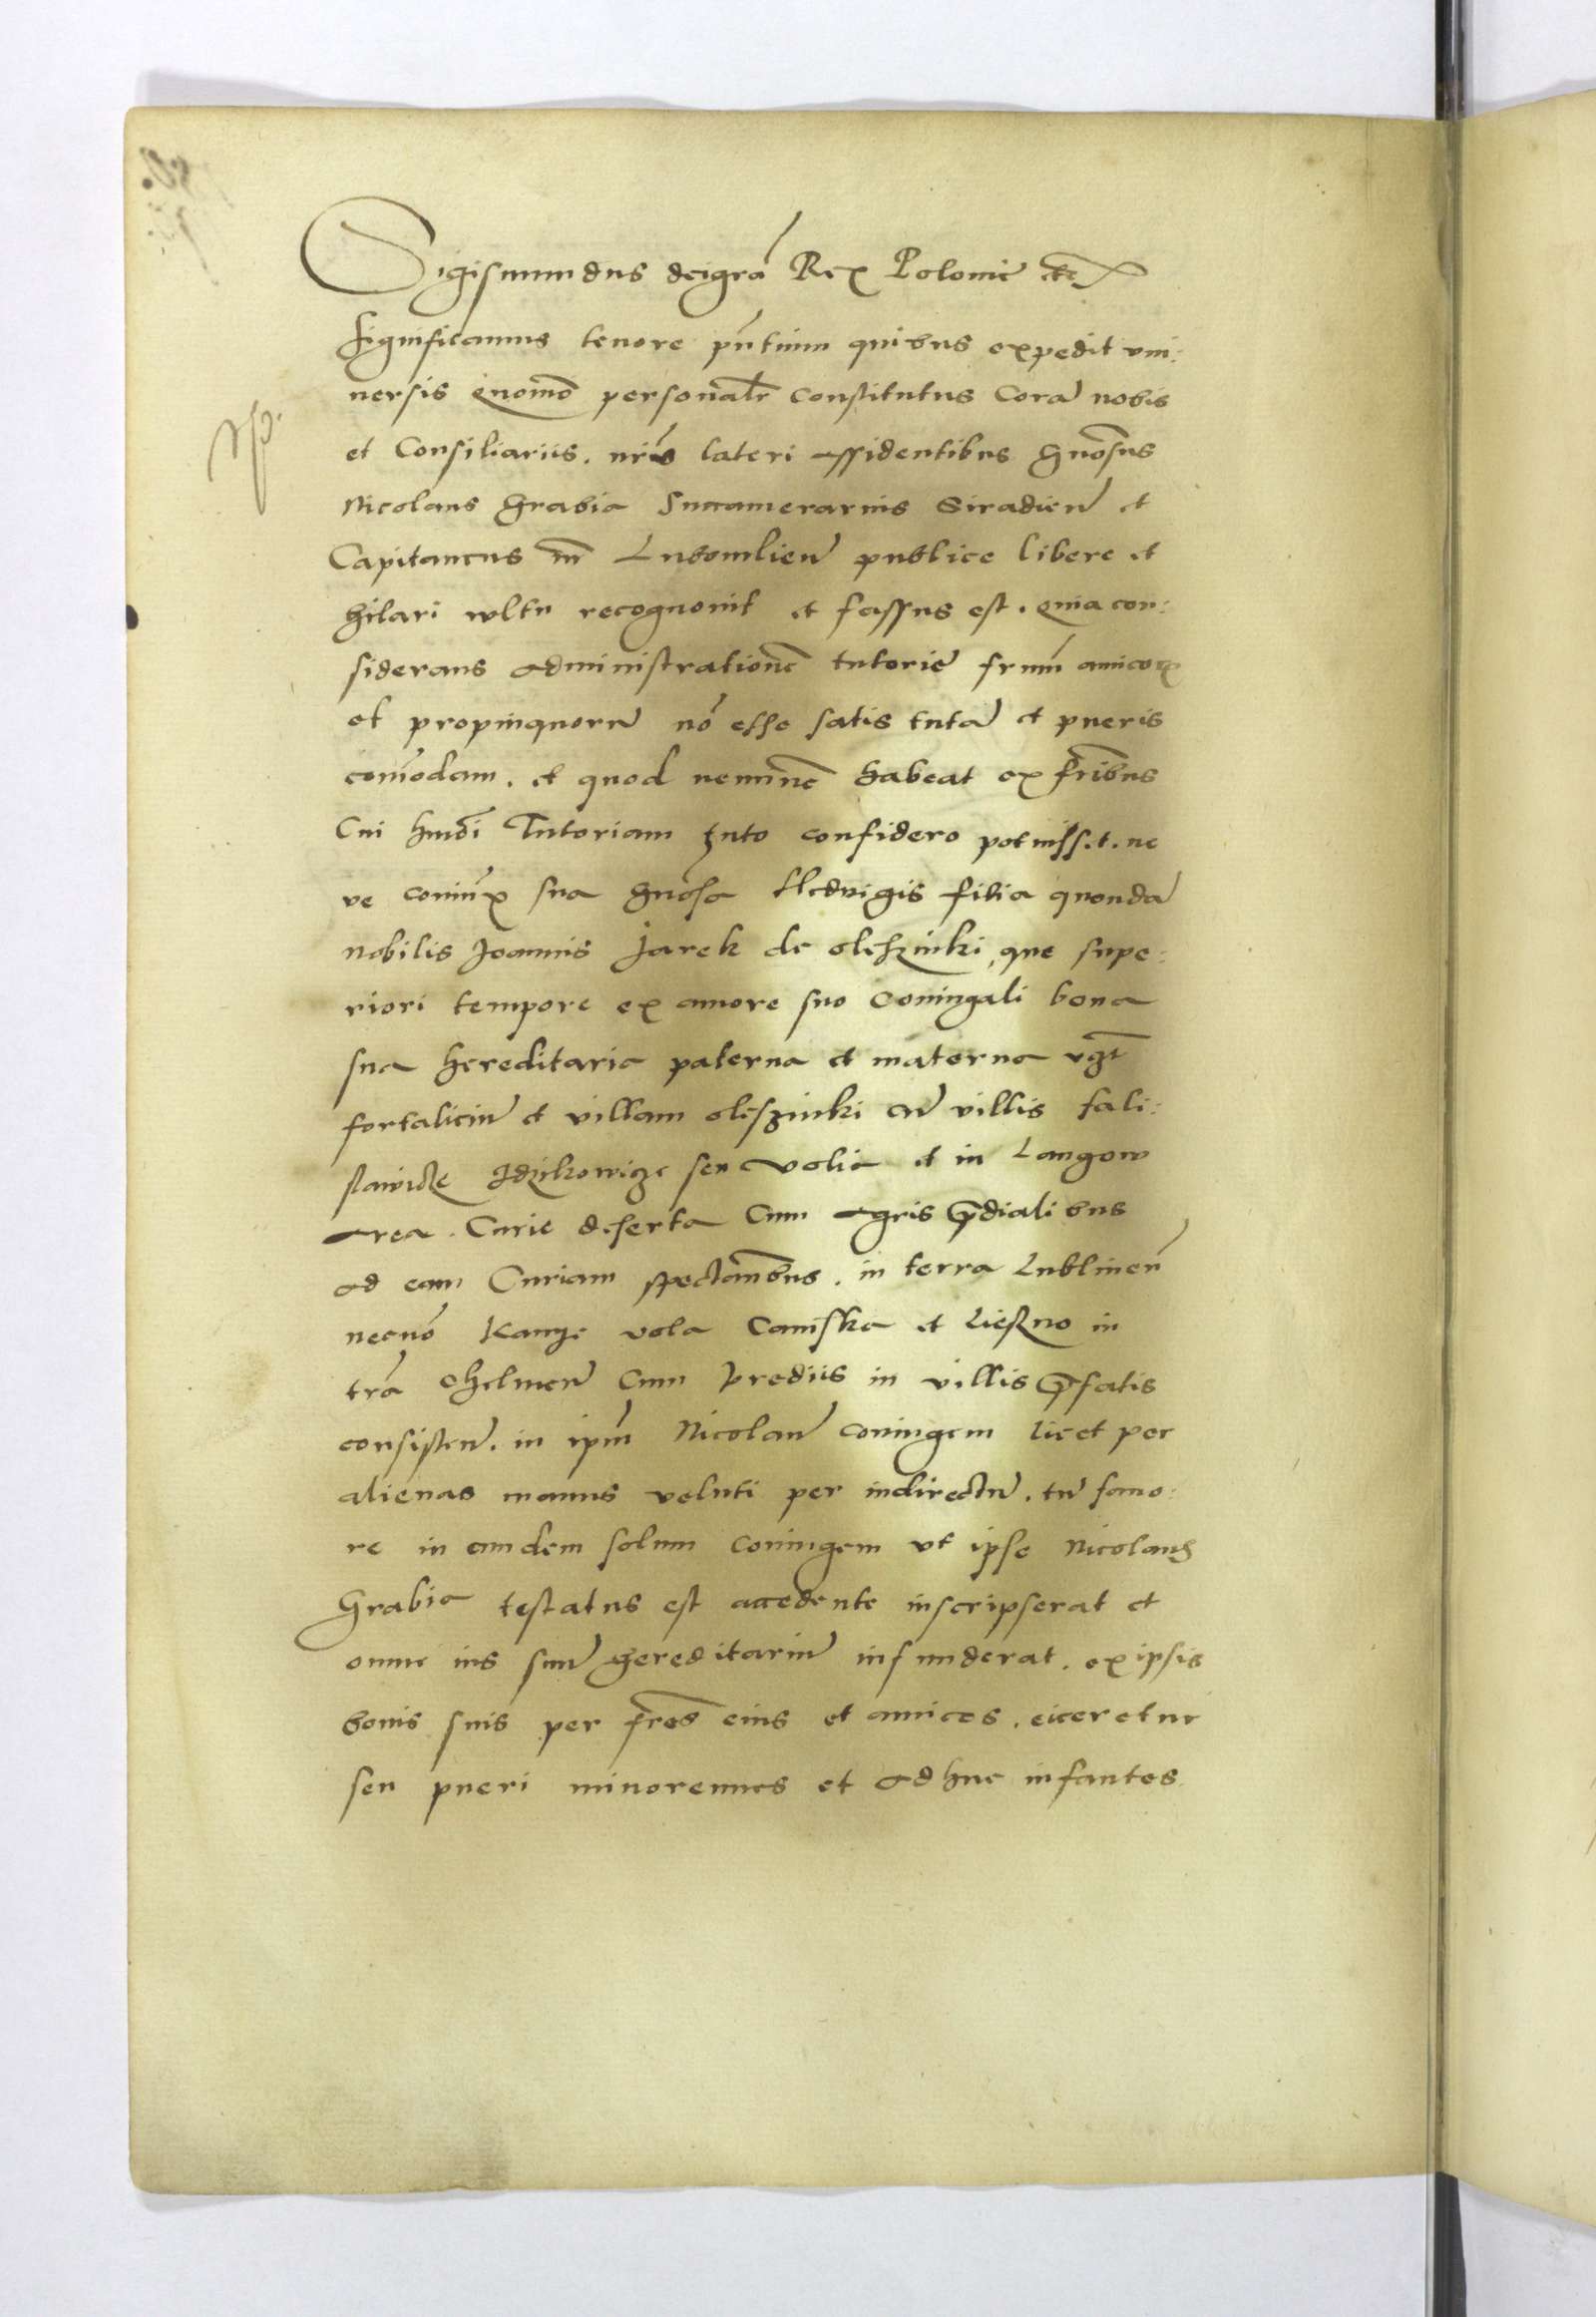 Sigismundus deigrã Rex Polonie etc
significamus tenore pñtium quibus expedit uni:
uersis quomõ personalr constitutus Corã nobis
et Consiliariis. nrĩs lateri assidentibus gñosus
Nicolaus Grabia Succamerarius Siradien̄ et
Capitaneus in Lubomlien̄ publice libere et
hilari wltu recognouit et fassus est. quia con:
siderans administrationē tutorie frum̃ amicorꝝ
et propinquorũ nõ esse satis tutã et pueris
com̃odam. et quod neminē habeat ex fribus
Cui hmõi Tutoriam tuto confidere potuisset. ne
ve coniunx sua gñosa Hedvigis filia quondã
nobilis Joannis Jarek de oleszinki, que supe:
riori tempore ex amore suo Coniugali bona
sua hereditaria paterna et materna vȝt
fortaliciũ et villam oleszinki cũ villis fali:
stawicze Idzikowicze seu volia et in Langow
area. Curie deserta Cum agris p̄dialibus
ad eam Curiam spectanbus. in terra Lublinen̄
necnõ Kamye vola Camska et Lieszno in
trã Chelmen̄ Cum prediis in villis p̄fatis
consisten̄. in ipm̃ Nicolaũ coniugem licet per
alienas manus veluti per indirectũ. tñ fauo:
re in eundem solum coniugem ut ipse Nicolaus
Grabia testatus est accedente inscripserat et
omne ius suũ hereditariũ infunderat. ex ipsis
bonis suis per frẽs eius et amicos. eiceretur
seu pueri minorennes et adhuc infantes